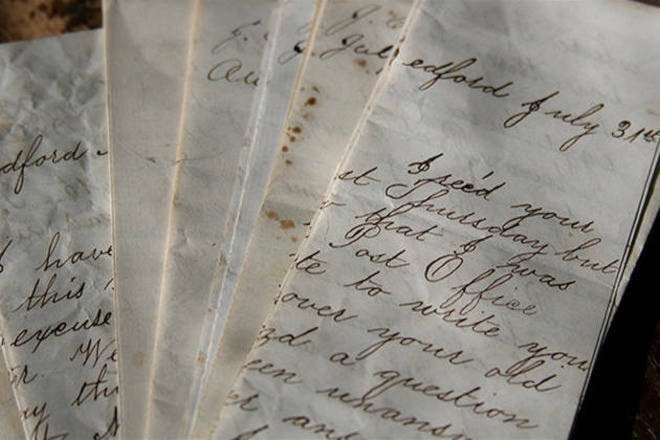 dford
I have
this
excuse
We
Au
Jul
edford July 31st
I rec'd your
st Thursday but
that I was
Post Office
te to write you
over your old
d a question
een unansw